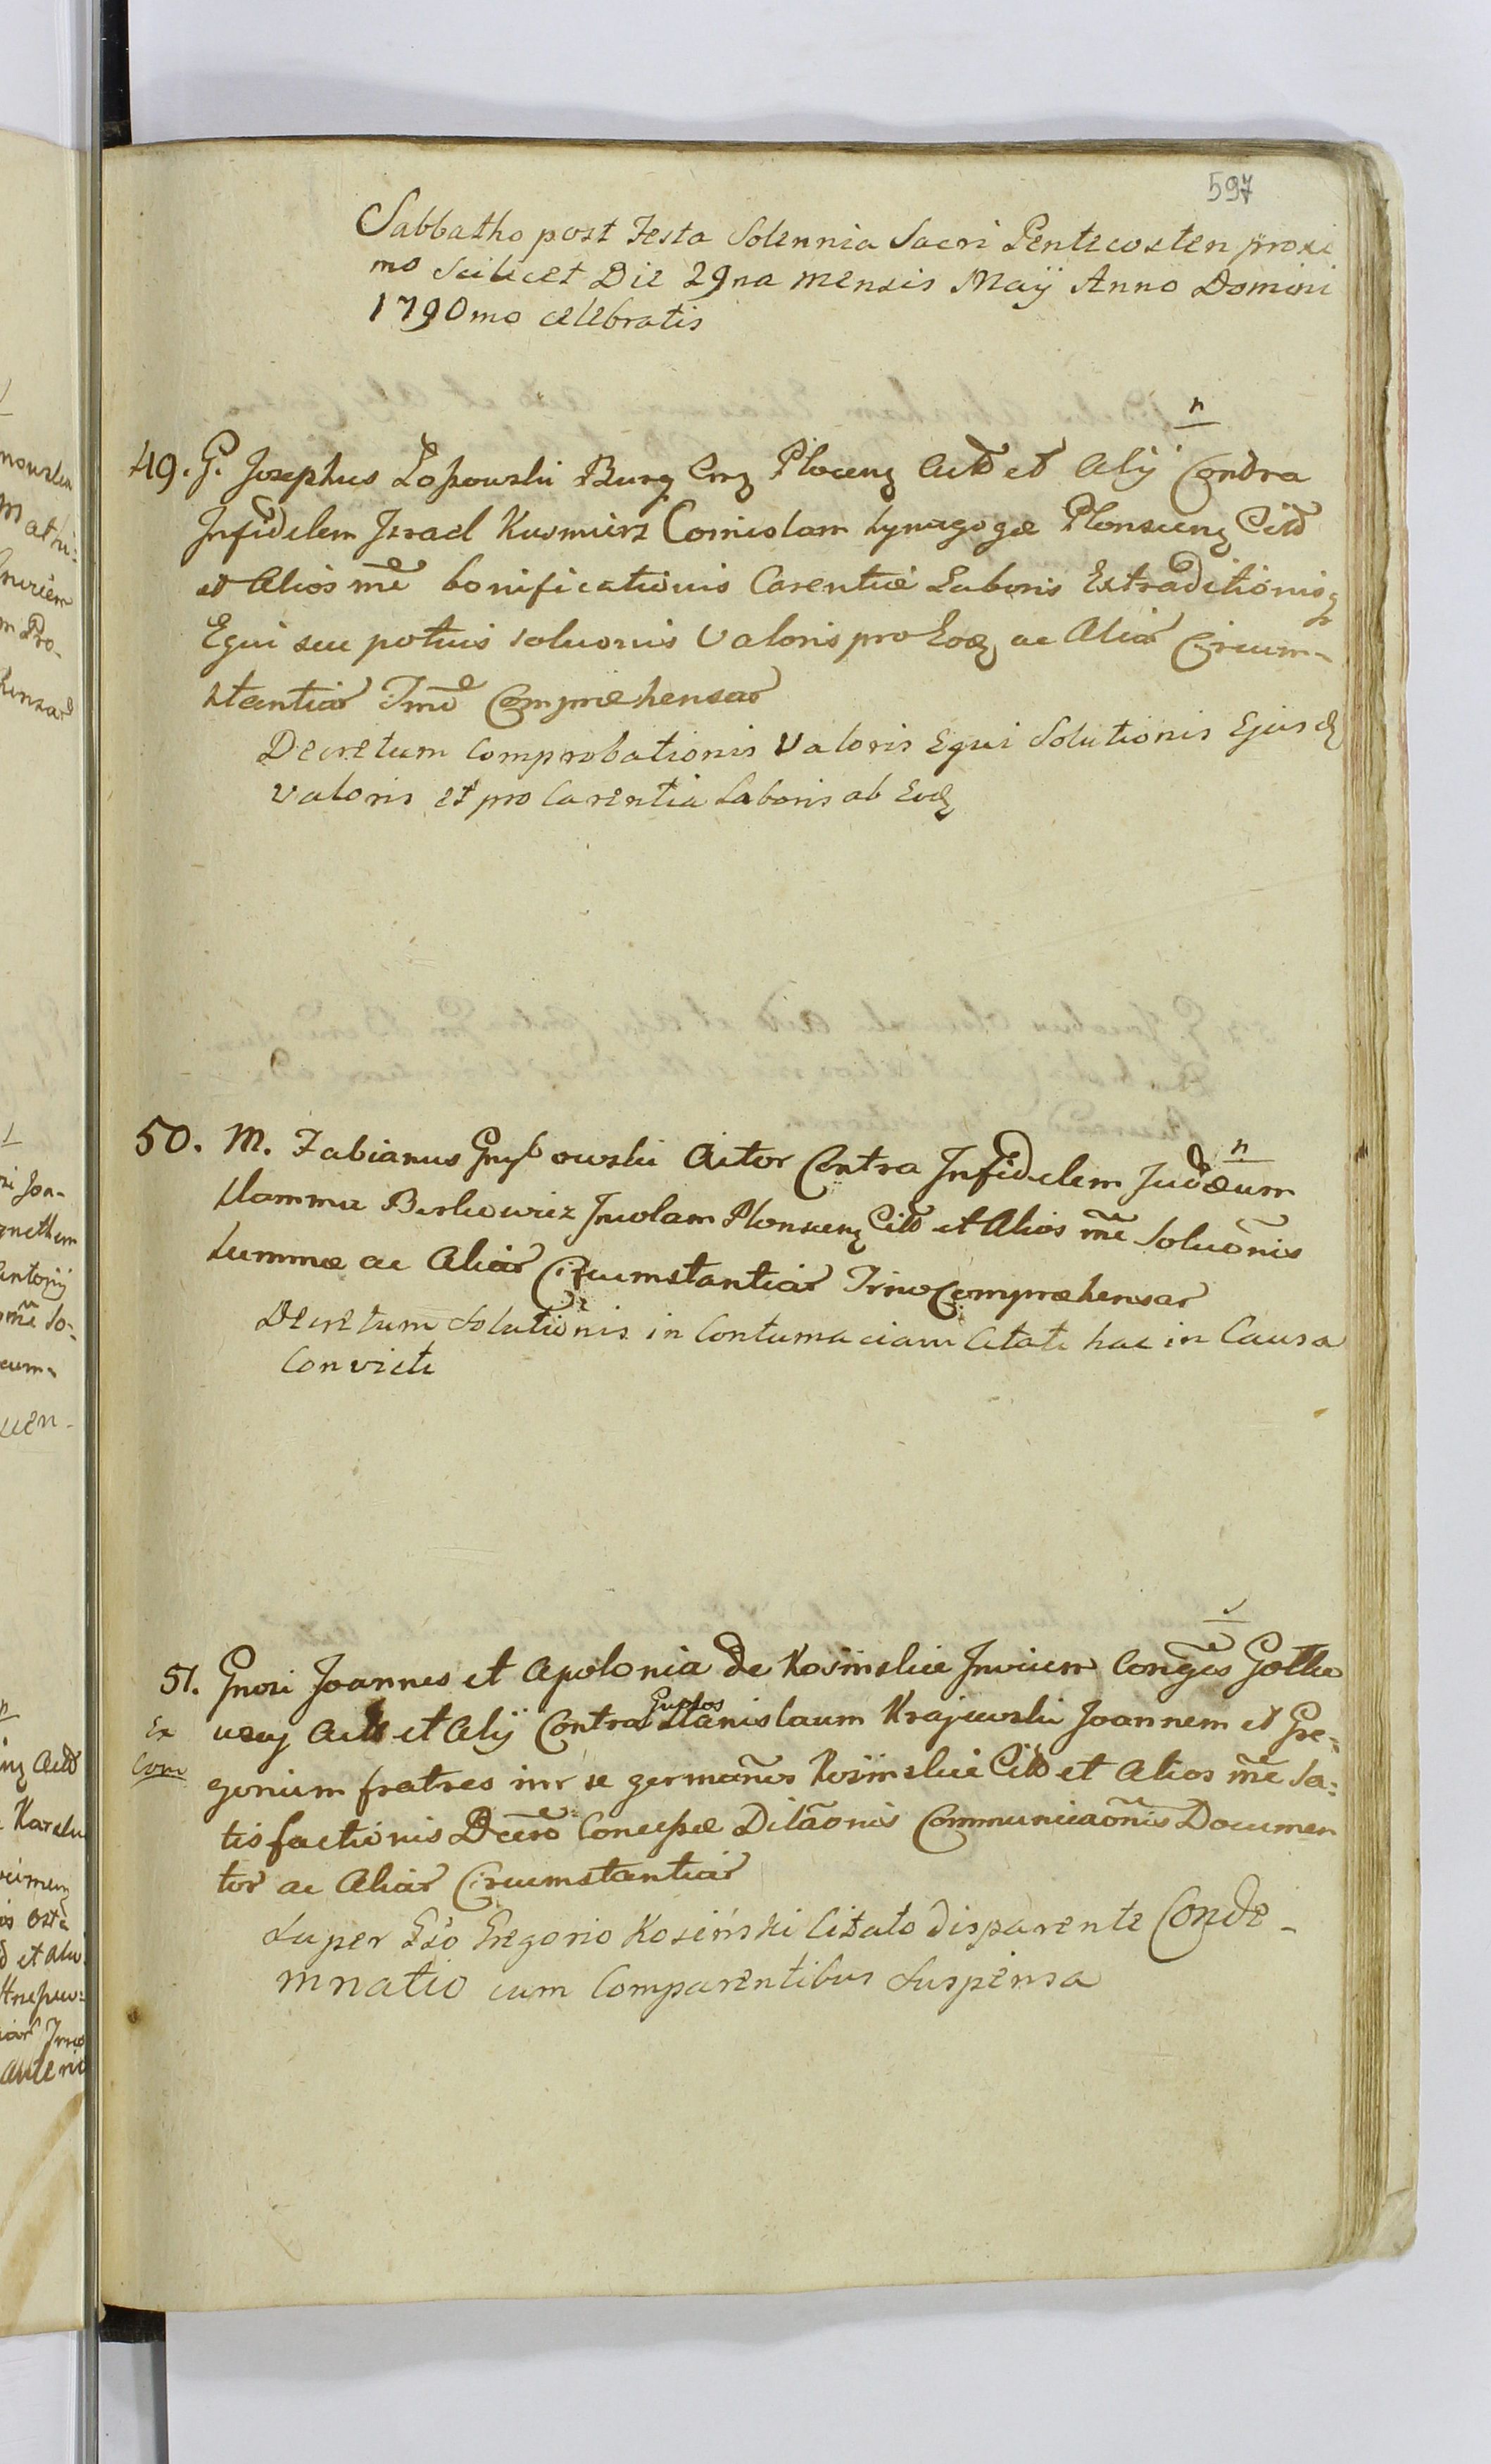 597
Sabbatho post Festa Solennia Sacri Pentecosten proxi
mo scilicet Die 29na mensis Maÿ Anno Domini
1790mo celebratis
n
49. G. Josephus Łopowski Burg Crz Plocenz Actd et Alÿ Contra
Infidelem Israel Kusmierz Comiolam Synagogæ Plonscenz Citd
et Alios mẽ bonificationis Carentiæ Laboris Extraditionisq
Equi seu potius soluonis Valoris pro Eodz ac Aliar Circum-
stantiar Inũo Compræhensar
Decretum comprobationis valoris Equi Solutionis Ejusdz
valoris et pro Carentia Laboris ab Eodz
n
50. M. Fabianus Grzybowski Actor Contra Infidelem Judæum
Slamma Berkowicz Incolam Plonscenz Citd et Alios mẽ Soluõnis
Summæ ac Aliar Circumstantiar Inno Compræhensar
Decretum Solutionis in Contumaciam Citati hac in Causa
Convicti
51. Gnosi Joannes et Apolonia de Kosinskie Invicem Conges Gotko
Ex
Com
uscy Actd et Alÿ Contra Gnosos Stanislaum Krajewski Joannem et Gre-
gorium fratres inr se germanos Kosinskie Citd et Alios mẽ Sa-
tisfactionis Decro Conceptæ Dilaõnis Communicaõnis Documen
tor ac Aliar Circumstantiar
Super Gso Gregorio Kosiński Citato disparente Conde-
mnatio cum Comparentibus Suspensa